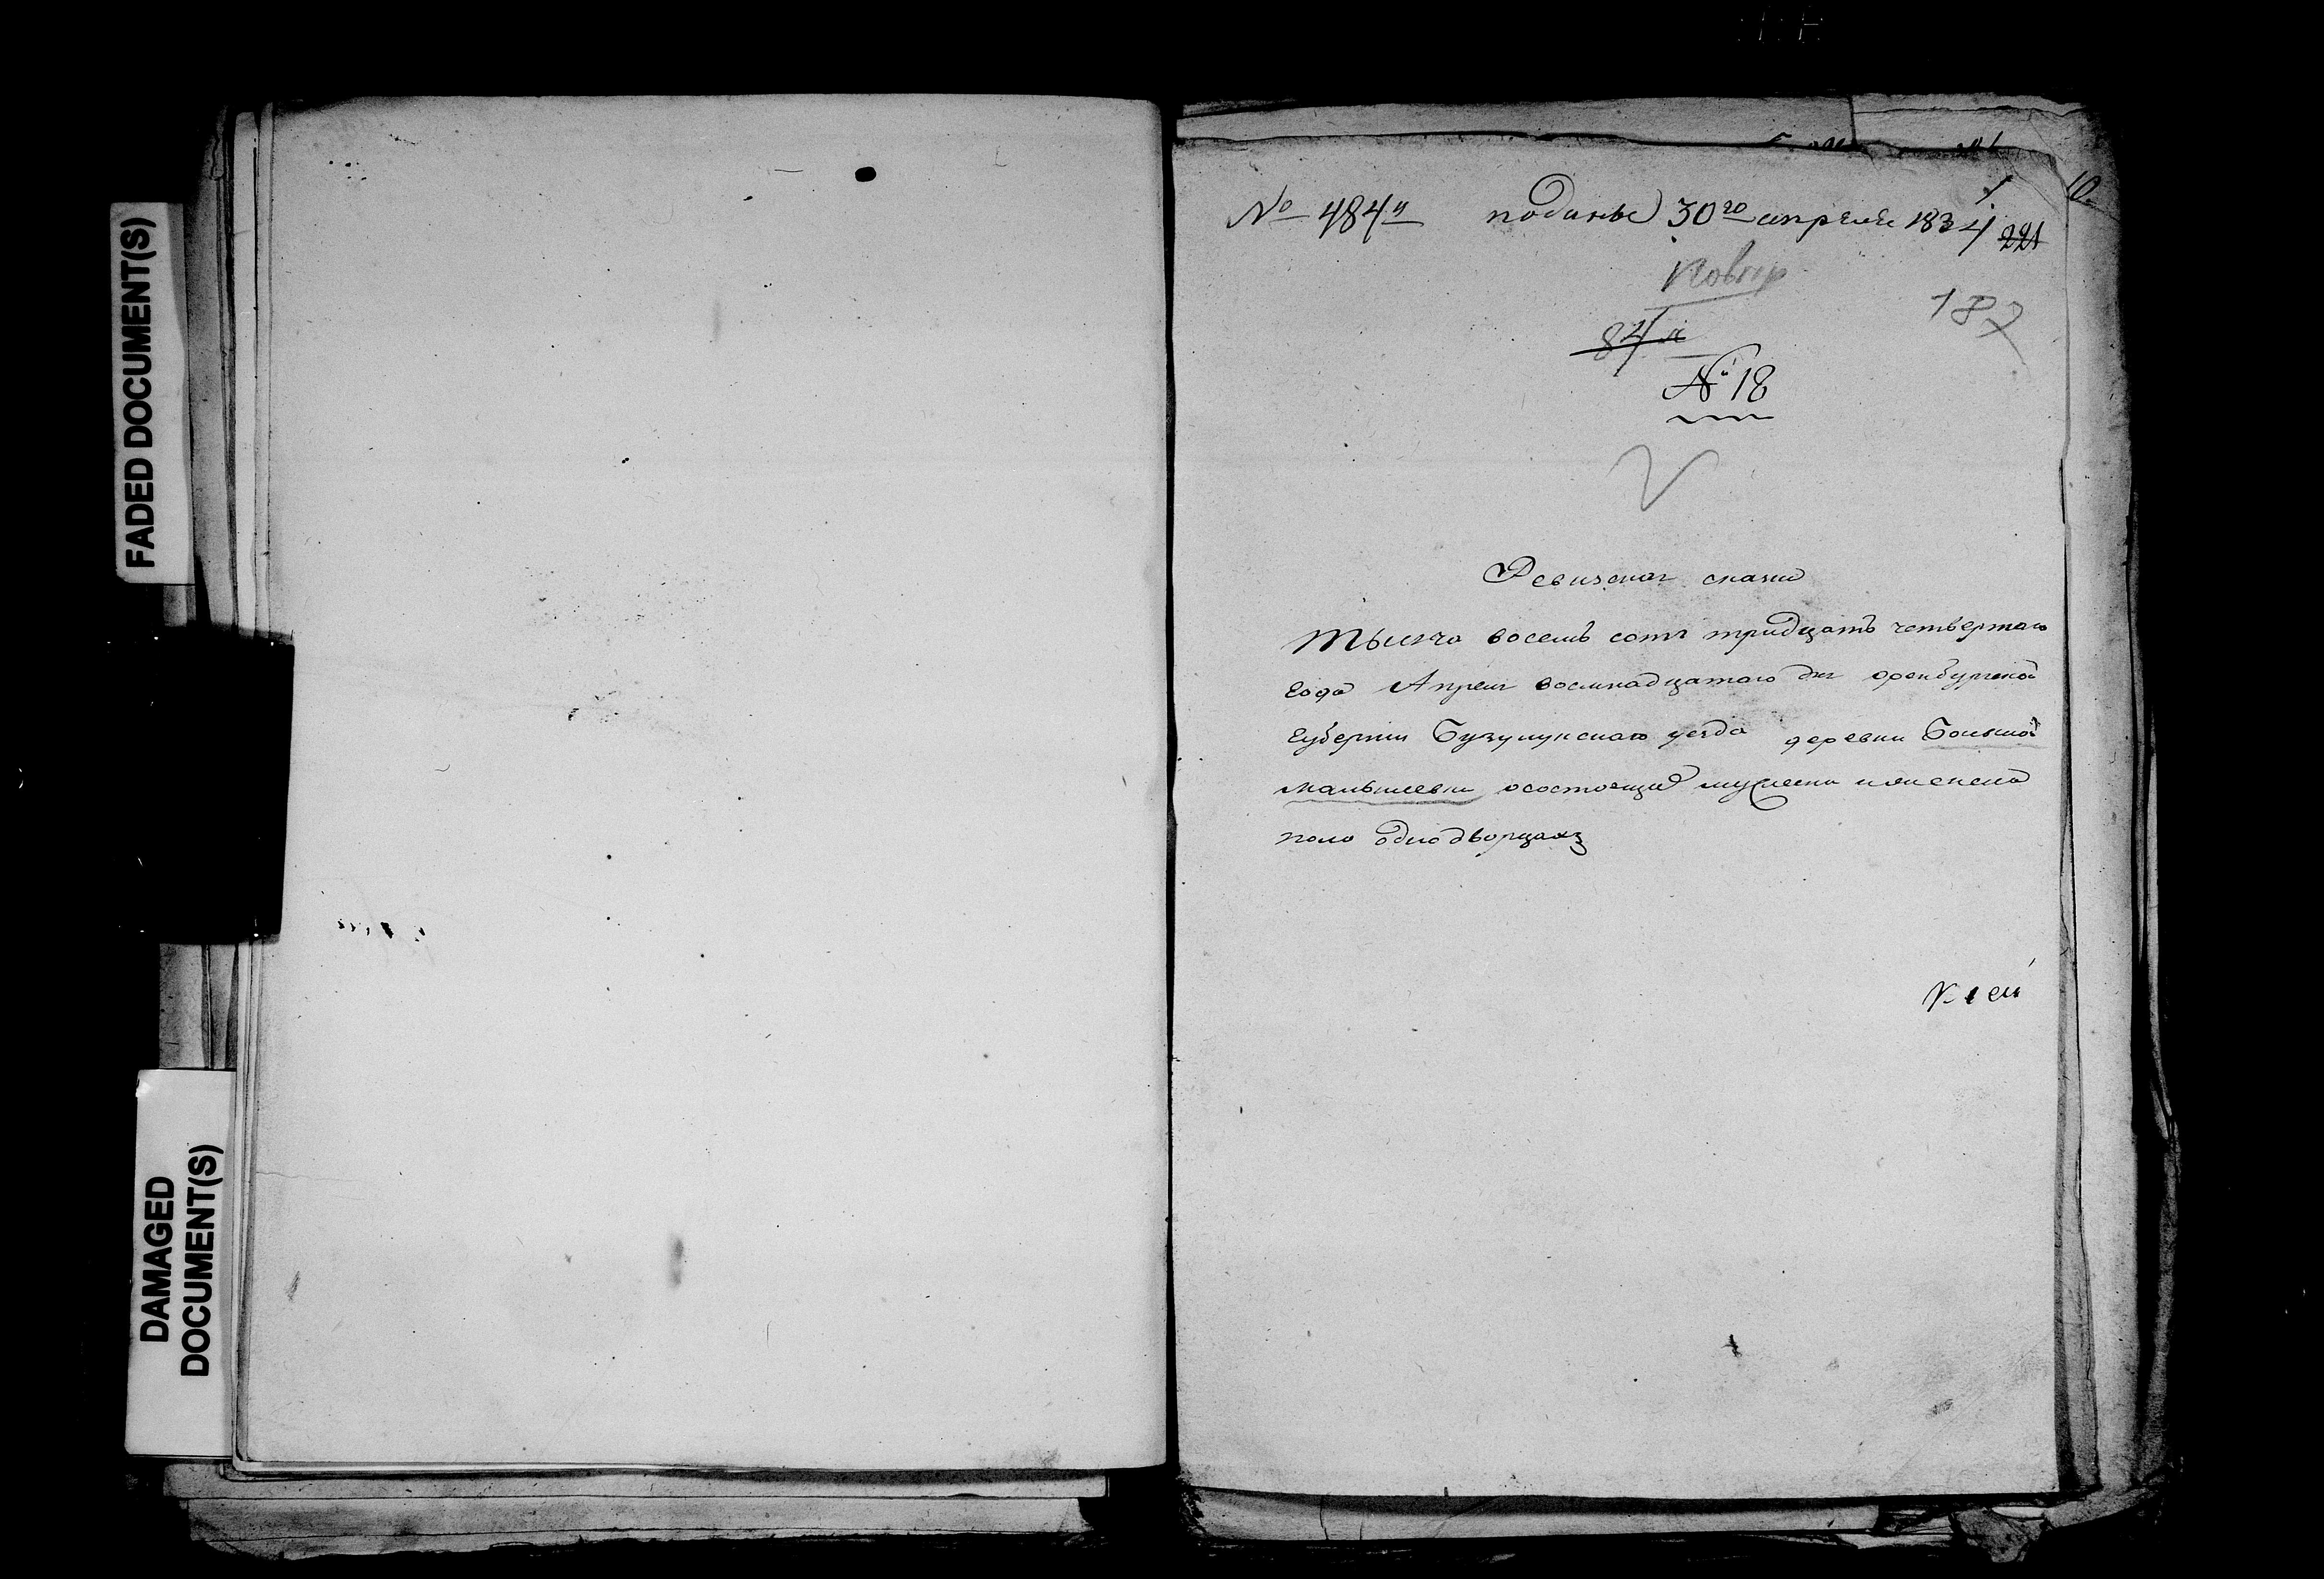 FADED DOCUMENT(S)
DAMAGED
DOCUMENT(S)
№ 484й поданы 30го апреля 1834
221
187
84 я
№ 18
Ревизская сказка
Тысяча восемь сотъ тридцать четвертаго
года Апреля восемнадцатаго дня оренбургской
губернии Бузулукскаго уезда деревни Большой
малышевки осостоящих мужеска и женска
пола однодворцахъ